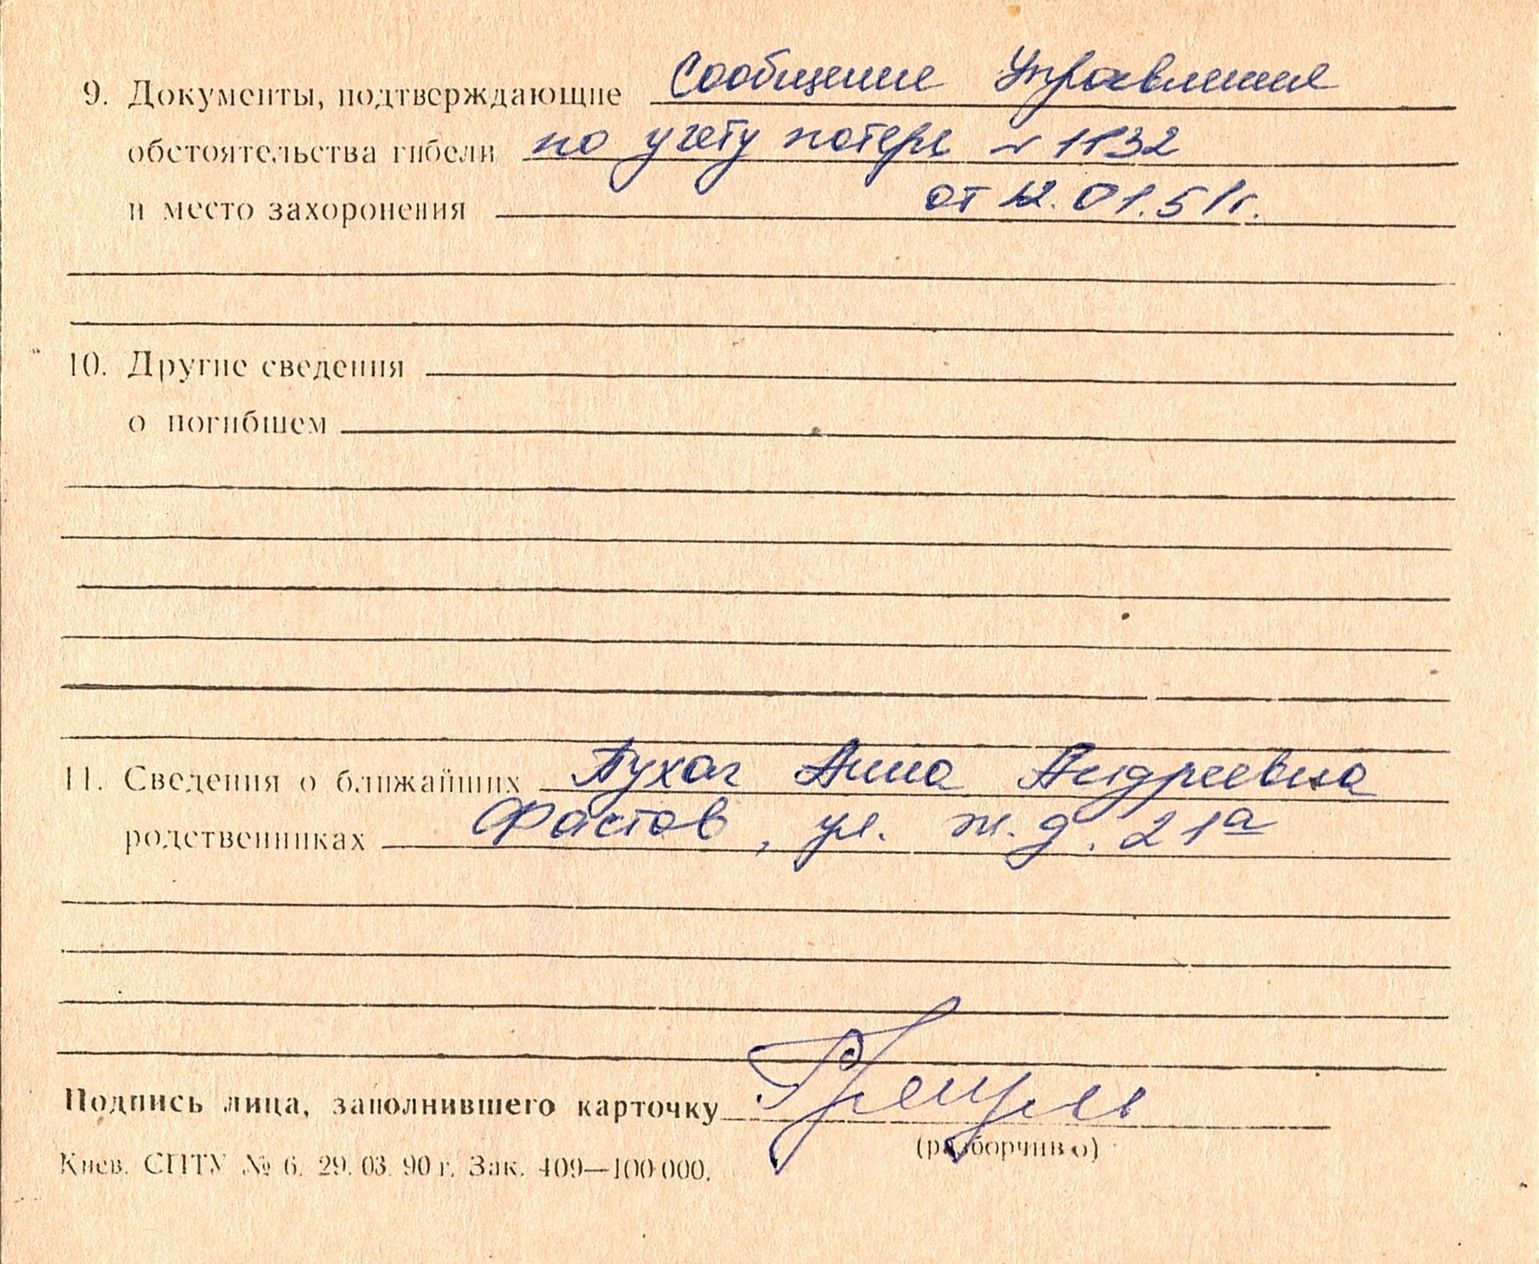 9. Документы, подтверждающие Сообщение Управления
обстоятельства гибели по учету потерь № 1132
и место захоронения от 12.01.51г.
10. Другие сведения
о погибшем
11. Сведения о ближайших Пухог Анна Андреевна
родственниках Фастов, ул. ж.д. 21а
Подпись лица, заполнившего карточку
(разборчиво)
Киев. СПТУ № 6. 29. 03. 90 г. Зак. 409—100 000.